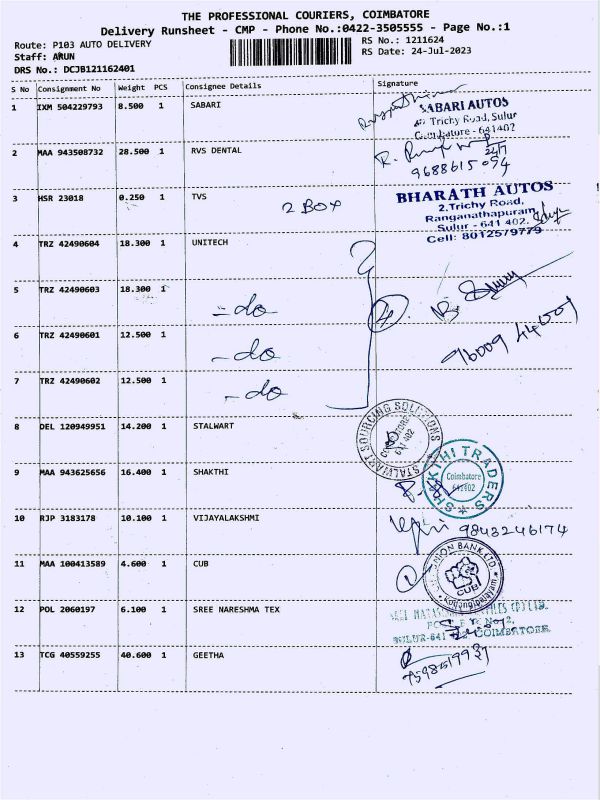 THE PROFESSIONAL COURIERS, COIMBATORE
Delivery Runsheet - CMP - Phone No.:0422-3505555 - Page No.:1
Route: P103 AUTO DELIVERY
RS No.: 1211624
Staff: ARUN
RS Date: 24-Jul-2023
DRS No.: DCJB121162401
S No Consignment No Weight PCS Consignee Details Signature
1 IXM 504229793 8.500 1 SABARI
SABARI AUTOS
Trichy Road, Sulur
Coimbatore - 641402
2 MAA 943508732 28.500 1 RVS DENTAL
24/7
9688615094
3 HSR 23018 0.250 1 TVS
2 BOX
BHARATH AUTOS
2.Trichy Road,
Ranganathapuram,
Sulur - 641 402.
Cell: 8012579779
4 TRZ 42490604 18.300 1 UNITECH
5 TRZ 42490603 18.300 1
- do
4
6 TRZ 42490601 12.500 1
- do
96009 44001
7 TRZ 42490602 12.500 1
- do
8 DEL 120949951 14.200 1 STALWART
STALWART SOURCING SOLUTIONS
COIMBATORE
641 402
9 MAA 943625656 16.400 1 SHAKTHI
SHAKTHI TRADERS
Coimbatore
641402
10 RJP 3183178 10.100 1 VIJAYALAKSHMI
9843246174
11 MAA 100413589 4.600 1 CUB
UNION BANK LTD.
CUB
12 POL 2060197 6.100 1 SREE NARESHMA TEX
SULUR-641 COIMBATORE
13 TCG 40559255 40.600 1 GEETHA